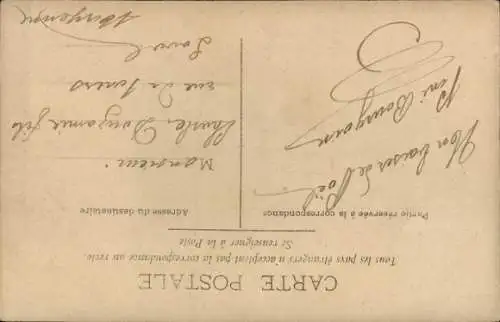 CARTE POSTALE
Tous les pays étrangers n'acceptent pas la correspondance au recto.
Si renseigner à la Poste
Partie réservée à la correspondance
Adresse du destinataire
Mon baiser de Noël
René Bourgouin
Monsieur
Charles fils
rue de
Laval
Mayenne